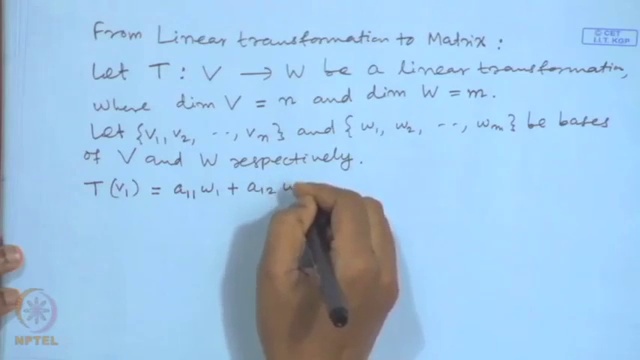 From Linear transformation to Matrix:
© CET
I.I.T. KGP
Let T: V → W be a linear transformation,
where dim V = n and dim W = m.
Let {v₁, v₂, .., vₙ} and {w₁, w₂, .., wₘ} be bases
of V and W respectively.
T(v₁) = a₁₁w₁ + a₁₂ w
NPTEL